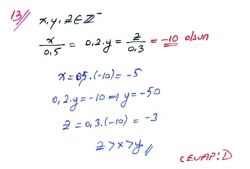 13) x, y, z ∈ ℤ⁻
x/0,5 = 0,2.y = z/0,3 = -10 olsun
x = 0,5.(-10) = -5
0,2.y = -10 ⇒ y = -50
z = 0,3.(-10) = -3
z > x > y //
CEVAP: D